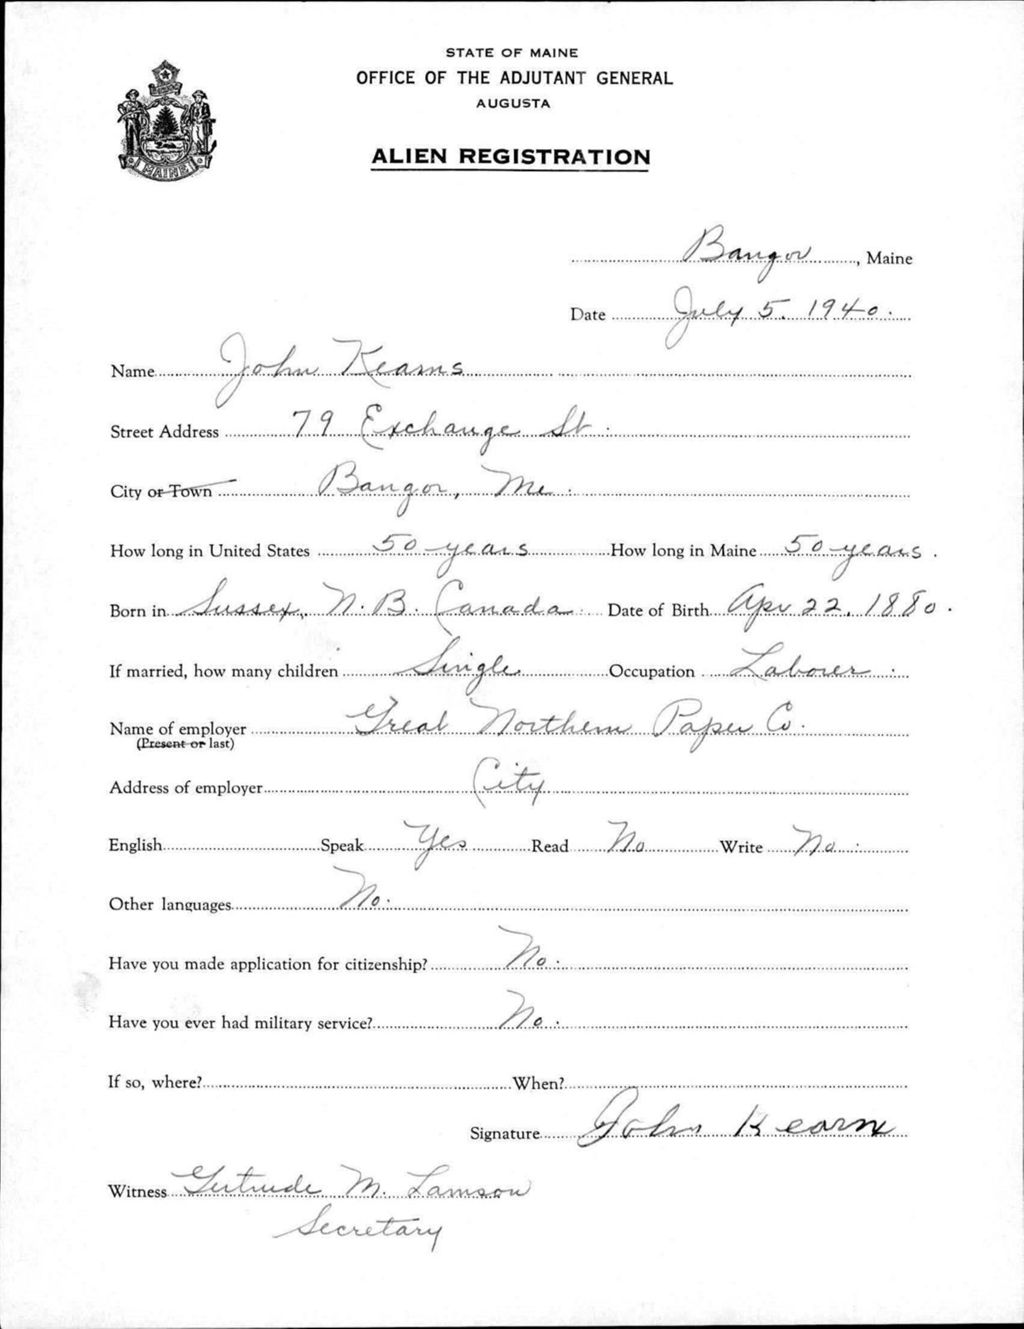 STATE OF MAINE
OFFICE OF THE ADJUTANT GENERAL
AUGUSTA
ALIEN REGISTRATION
MAINE
Bangor, Maine
Date July 5. 1940.
Name John Kearns
Street Address 79 Exchange St.
City or Town Bangor, Me.
How long in United States 50 years How long in Maine 50 years.
Born in Sussex, N.B. Canada Date of Birth Apr 22, 1880.
If married, how many children Single Occupation Laborer.
Name of employer Great Northern Paper Co.
(Present or last)
Address of employer City
English Speak Yes Read No Write No.
Other languages No.
Have you made application for citizenship? No.
Have you ever had military service? No.
If so, where? When?
Signature John Kearn
Witness Gertrude M. Lamson
Secretary